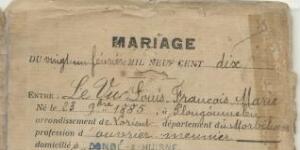 MARIAGE
DU vingt un février MIL NEUF CENT dix
ENTRE : Le Vu Louis, François, Marie
Né le 23 9bre 1885 à Plougoumelen
arrondissement de Lorient département du Morbihan
profession d'ouvrier meunier
domicilié à